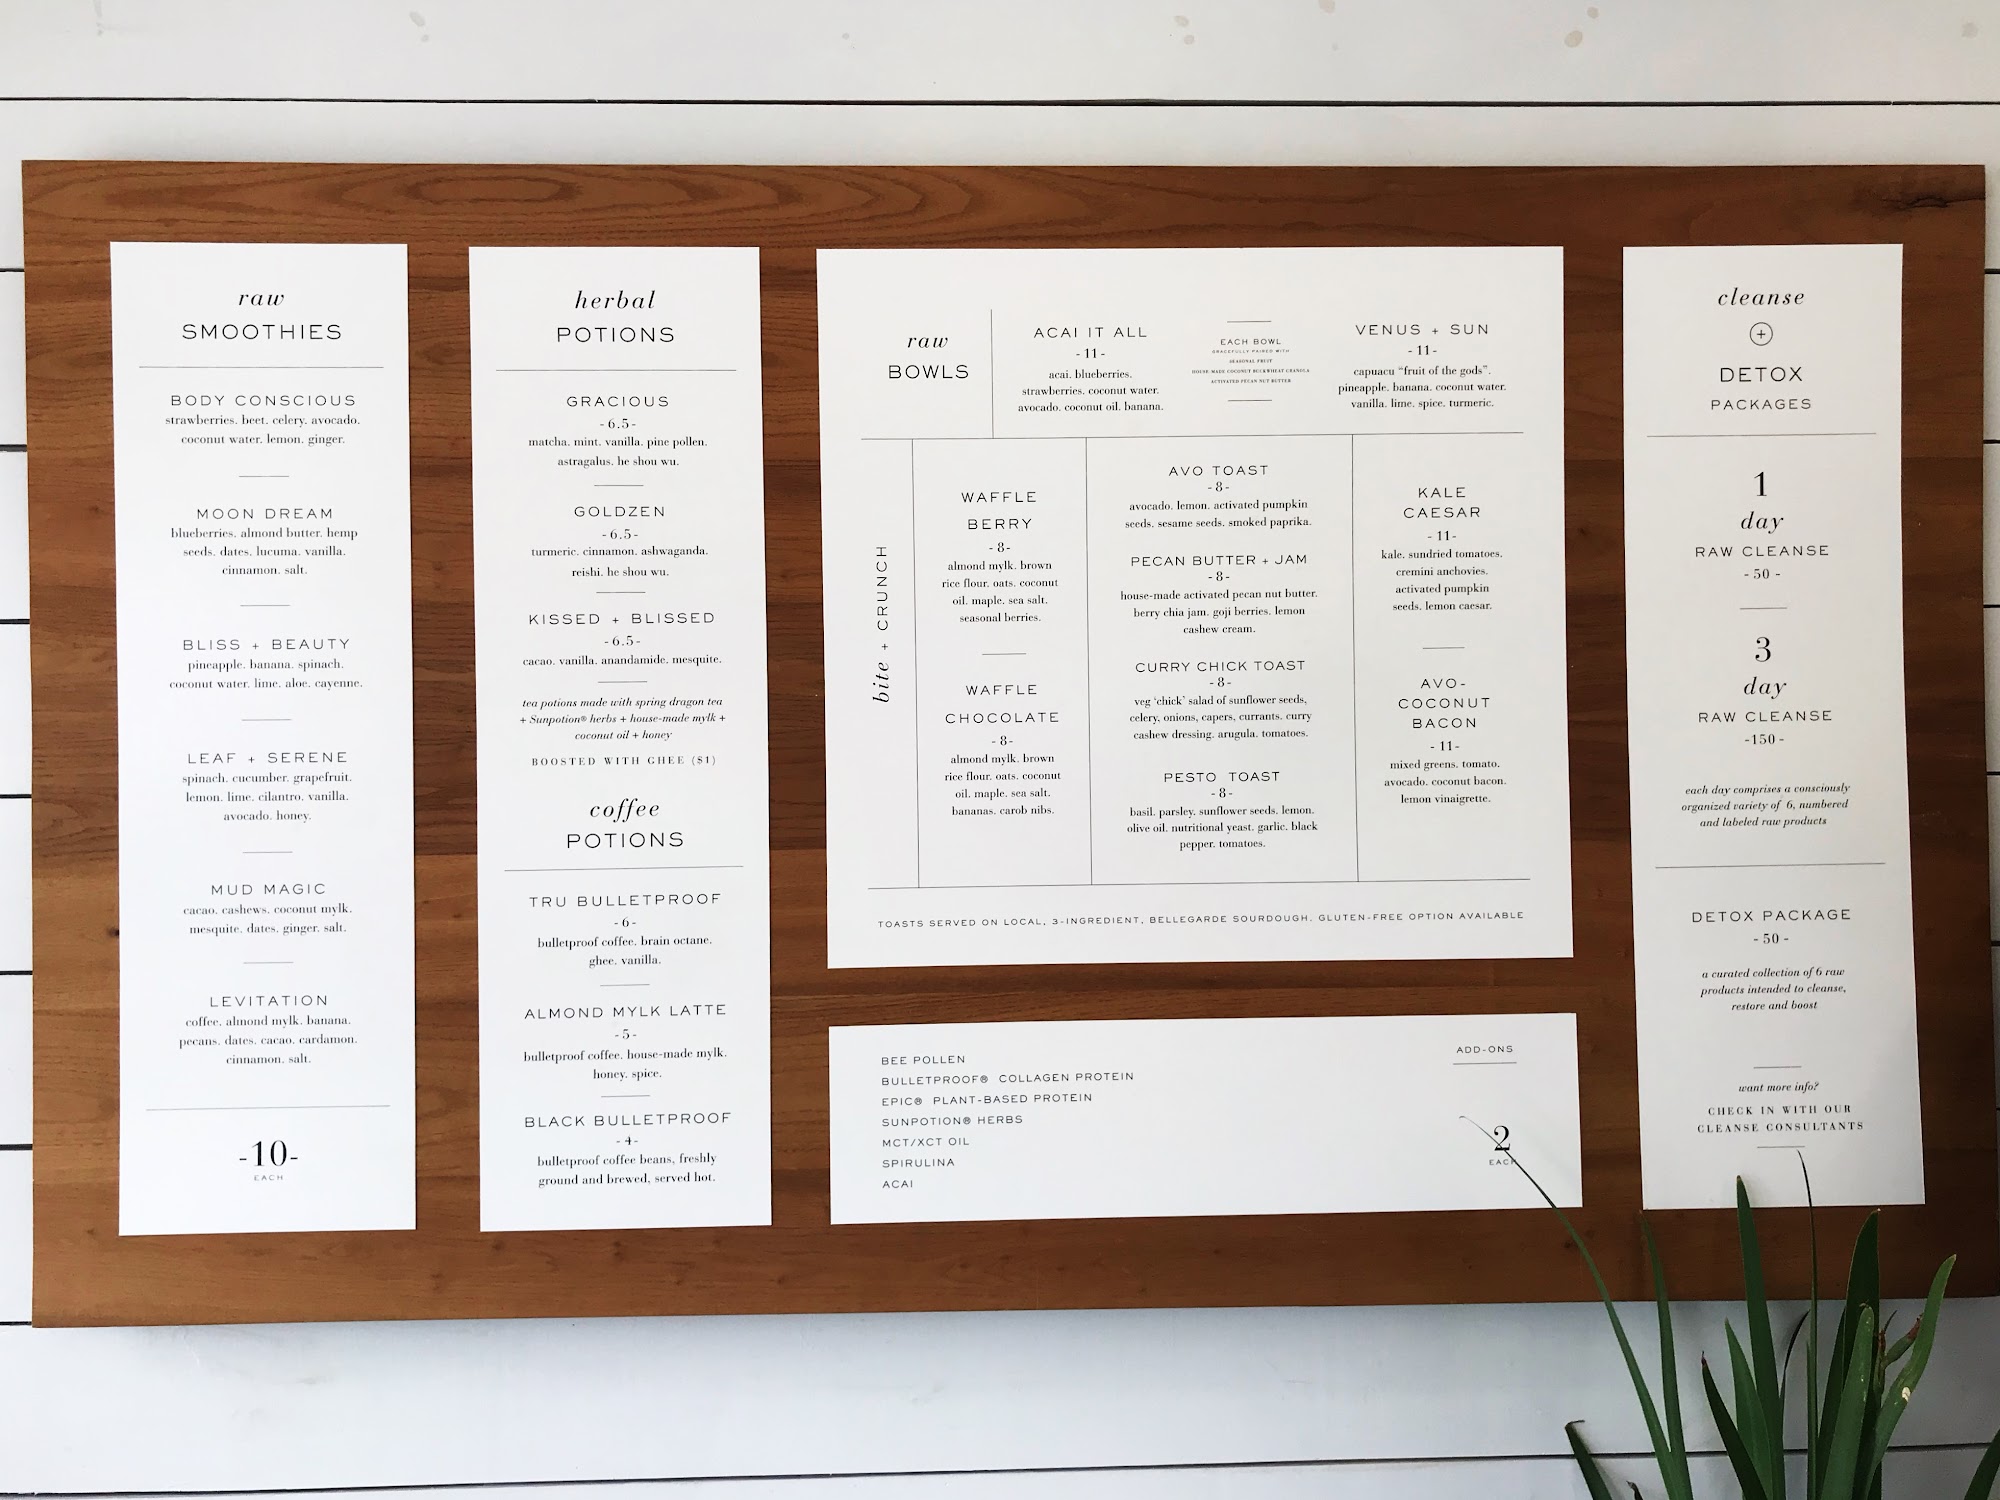 raw
SMOOTHIES
BODY CONSCIOUS
strawberries. beet. celery. avocado.
coconut water. lemon. ginger.
MOON DREAM
blueberries. almond butter. hemp
seeds. dates. lucuma. vanilla.
cinnamon. salt.
BLISS + BEAUTY
pineapple. banana. spinach.
coconut water. lime. aloe. cayenne.
LEAF + SERENE
spinach. cucumber. grapefruit.
lemon. lime. cilantro. vanilla.
avocado. honey.
MUD MAGIC
cacao. cashews. coconut mylk.
mesquite. dates. ginger. salt.
LEVITATION
coffee. almond mylk. banana.
pecans. dates. cacao. cardamon.
cinnamon. salt.
-10-
EACH
herbal
POTIONS
GRACIOUS
-6.5-
matcha. mint. vanilla. pine pollen.
astragalus. he shou wu.
GOLDZEN
-6.5-
turmeric. cinnamon. ashwaganda.
reishi. he shou wu.
KISSED + BLISSED
-6.5-
cacao. vanilla. anandamide. mesquite.
tea potions made with spring dragon tea
+ Sunpotion® herbs + house-made mylk +
coconut oil + honey
BOOSTED WITH GHEE ($1)
coffee
POTIONS
TRU BULLETPROOF
-6-
bulletproof coffee. brain octane.
ghee. vanilla.
ALMOND MYLK LATTE
-5-
bulletproof coffee. house-made mylk.
honey. spice.
BLACK BULLETPROOF
-4-
bulletproof coffee beans, freshly
ground and brewed, served hot.
raw
BOWLS
ACAI IT ALL
-11-
acai. blueberries.
strawberries. coconut water.
avocado. coconut oil. banana.
EACH BOWL
GRACEFULLY PAIRED WITH
SEASONAL FRUIT
HOUSE-MADE COCONUT BUCKWHEAT GRANOLA
ACTIVATED PECAN NUT BUTTER
VENUS + SUN
-11-
capuacu “fruit of the gods”.
pineapple. banana. coconut water.
vanilla. lime. spice. turmeric.
bite + CRUNCH
WAFFLE
BERRY
-8-
almond mylk. brown
rice flour. oats. coconut
oil. maple. sea salt.
seasonal berries.
WAFFLE
CHOCOLATE
-8-
almond mylk. brown
rice flour. oats. coconut
oil. maple. sea salt.
bananas. carob nibs.
AVO TOAST
-8-
avocado. lemon. activated pumpkin
seeds. sesame seeds. smoked paprika.
PECAN BUTTER + JAM
-8-
house-made activated pecan nut butter.
berry chia jam. goji berries. lemon
cashew cream.
CURRY CHICK TOAST
-8-
veg ‘chick’ salad of sunflower seeds,
celery, onions, capers, currants. curry
cashew dressing. arugula. tomatoes.
PESTO TOAST
-8-
basil. parsley. sunflower seeds. lemon.
olive oil. nutritional yeast. garlic. black
pepper. tomatoes.
KALE
CAESAR
-11-
kale. sundried tomatoes.
cremini anchovies.
activated pumpkin
seeds. lemon caesar.
AVO-
COCONUT
BACON
-11-
mixed greens. tomato.
avocado. coconut bacon.
lemon vinaigrette.
TOASTS SERVED ON LOCAL, 3-INGREDIENT, BELLEGARDE SOURDOUGH. GLUTEN-FREE OPTION AVAILABLE
BEE POLLEN
BULLETPROOF® COLLAGEN PROTEIN
EPIC® PLANT-BASED PROTEIN
SUNPOTION® HERBS
MCT/XCT OIL
SPIRULINA
ACAI
ADD-ONS
2
EACH
cleanse
+
DETOX
PACKAGES
1
day
RAW CLEANSE
-50-
3
day
RAW CLEANSE
-150-
each day comprises a consciously
organized variety of 6, numbered
and labeled raw products
DETOX PACKAGE
-50-
a curated collection of 6 raw
products intended to cleanse,
restore and boost
want more info?
CHECK IN WITH OUR
CLEANSE CONSULTANTS